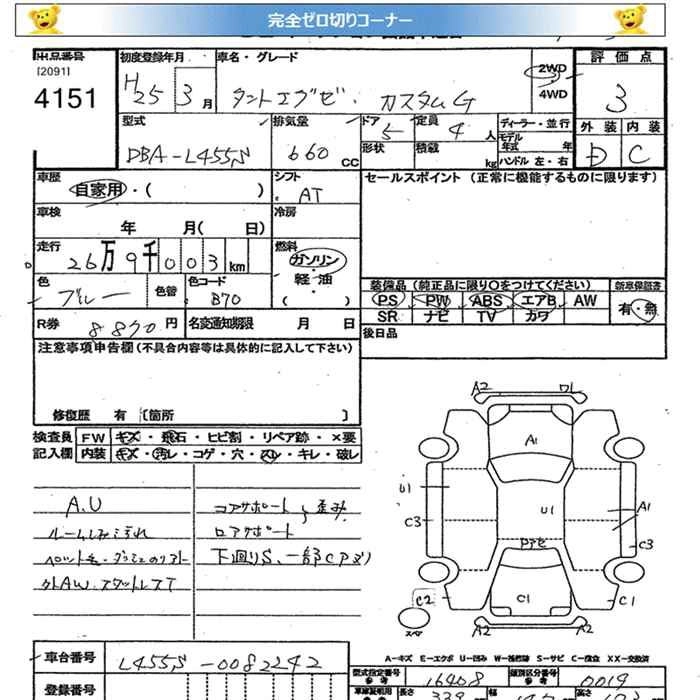 完全ゼロ切りコーナー
出品番号 初度登録年月 車名・グレード 評価点
[2091] 2WD
4151 H25 3月 タントエグゼ・カスタムG 4WD 3
型式 排気量 ドア 5 定員 4人 ディーラー・並行 外装 内装
モデル年式 年
DBA-L455S 660cc 形状 積載 kg ハンドル 左・右 D C
車歴 シフト セールスポイント (正常に機能するものに限ります)
自家用・( ) AT
車検 冷房
年 月( 日)
走行 燃料
26万9千003km ガソリン
軽・油
色 色替 色コード 装備品(純正品に限り〇をつけてください) 新車保証書
ブルー B70 ( ) PS PW ABS エアB AW 有・無
SR ナビ TV カワ
R券 8870円 名変通知期限 月 日 後日品
注意事項申告欄(不具合内容等は具体的に記入して下さい)
修復歴 有 〔箇所 〕
検査員 FW キズ・飛石・ヒビ割・リペア跡・×要
記入欄 内装 キズ・汚レ・コゲ・穴・スレ・キレ・破レ
A.U コアサポート 歪み
ルームしみ汚れ ロアサポート
下廻りS、一部Cアリ
外AW.スタットレスT
A2 フL
A1
U1 U1 A1
C3 C3
アセ
C2 C1 C1
スペア A2 A2
A-キズ E-エクボ U-凹み W-補修跡 S-サビ C-腐食 XX-交換済
車台番号 L455S-0082242 型式指定番号 参考 16408 類別区分番号 参考 0019
登録番号 長さ 339 幅 147 高さ